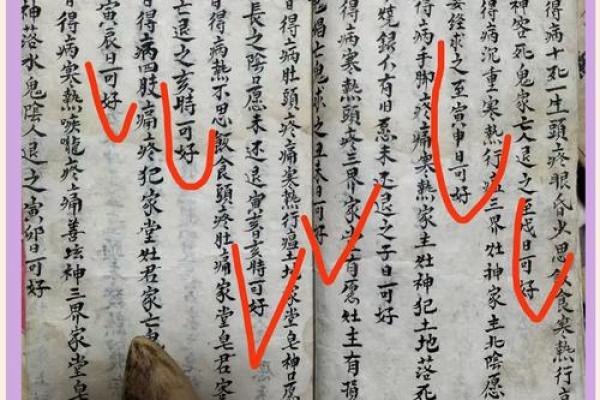 得病十死一生頭疼眼昏少思飲食寒熱行
神客死鬼家亡人退之至戌日可好
得病沉重寒熱行瘟三界灶神家主北陰愿
求之至寅申日可好
得病手脚疼痛寒熱家主灶神犯土地落死
有旧愿未还退之子日可好
得病寒熱頭疼三界家有愿灶主有損
鬼求之丑未日可好
得病肚頭疼痛寒熱行瘟土地家堂皂神愿
長之陰愿未还退寅亥時可好
日得病熱不思飲食頭疼肚痛家堂皂君客
亡退之亥時可好
日得病四肢痛疼犯家堂灶君家亡
寅辰日可好
日得病寒熱喉嚨疼痛善坛神三界家堂皂
神落水鬼陰人退之寅卯日可好